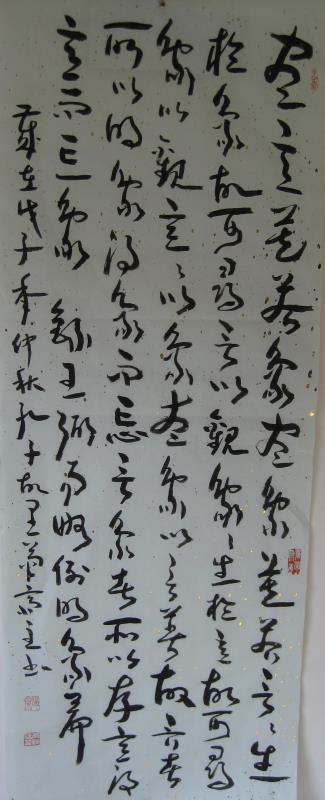 盡意莫若象盡象莫若言〻生
於象故可尋言以觀象〻生於意故可尋
象以觀意〻以象盡象以言著故言者
所以明象得象而忘言象者所以存意得
意而忘象 錄王弼易略例明象篇
歲在戊子年仲秋孔子故里齋主書